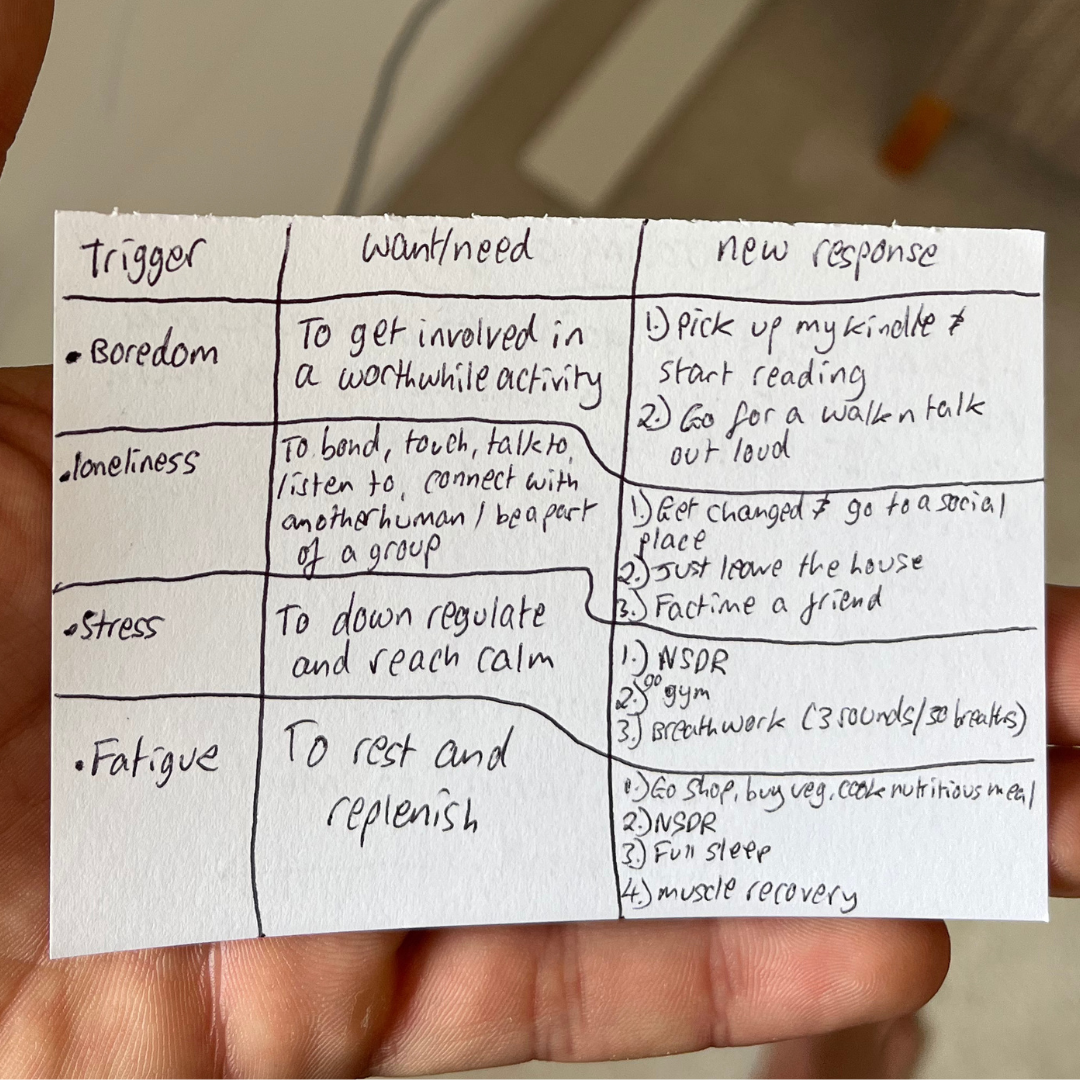 trigger
want/need
new response
• Boredom
To get involved in
a worthwhile activity
1.) Pick up my kindle &
start reading
2.) Go for a walk n talk
out loud
• loneliness
To bond, touch, talk to,
listen to, connect with
another human / be a part
of a group
1.) Get changed & go to a social
place
2.) Just leave the house
3.) Factime a friend
• Stress
To down regulate
and reach calm
1.) NSDR
2.) go gym
3.) Breathwork (3 rounds/30 breaths)
• Fatigue
To rest and
replenish
1.) Go shop, buy veg, cook nutritious meal
2.) NSDR
3.) Full sleep
4.) muscle recovery